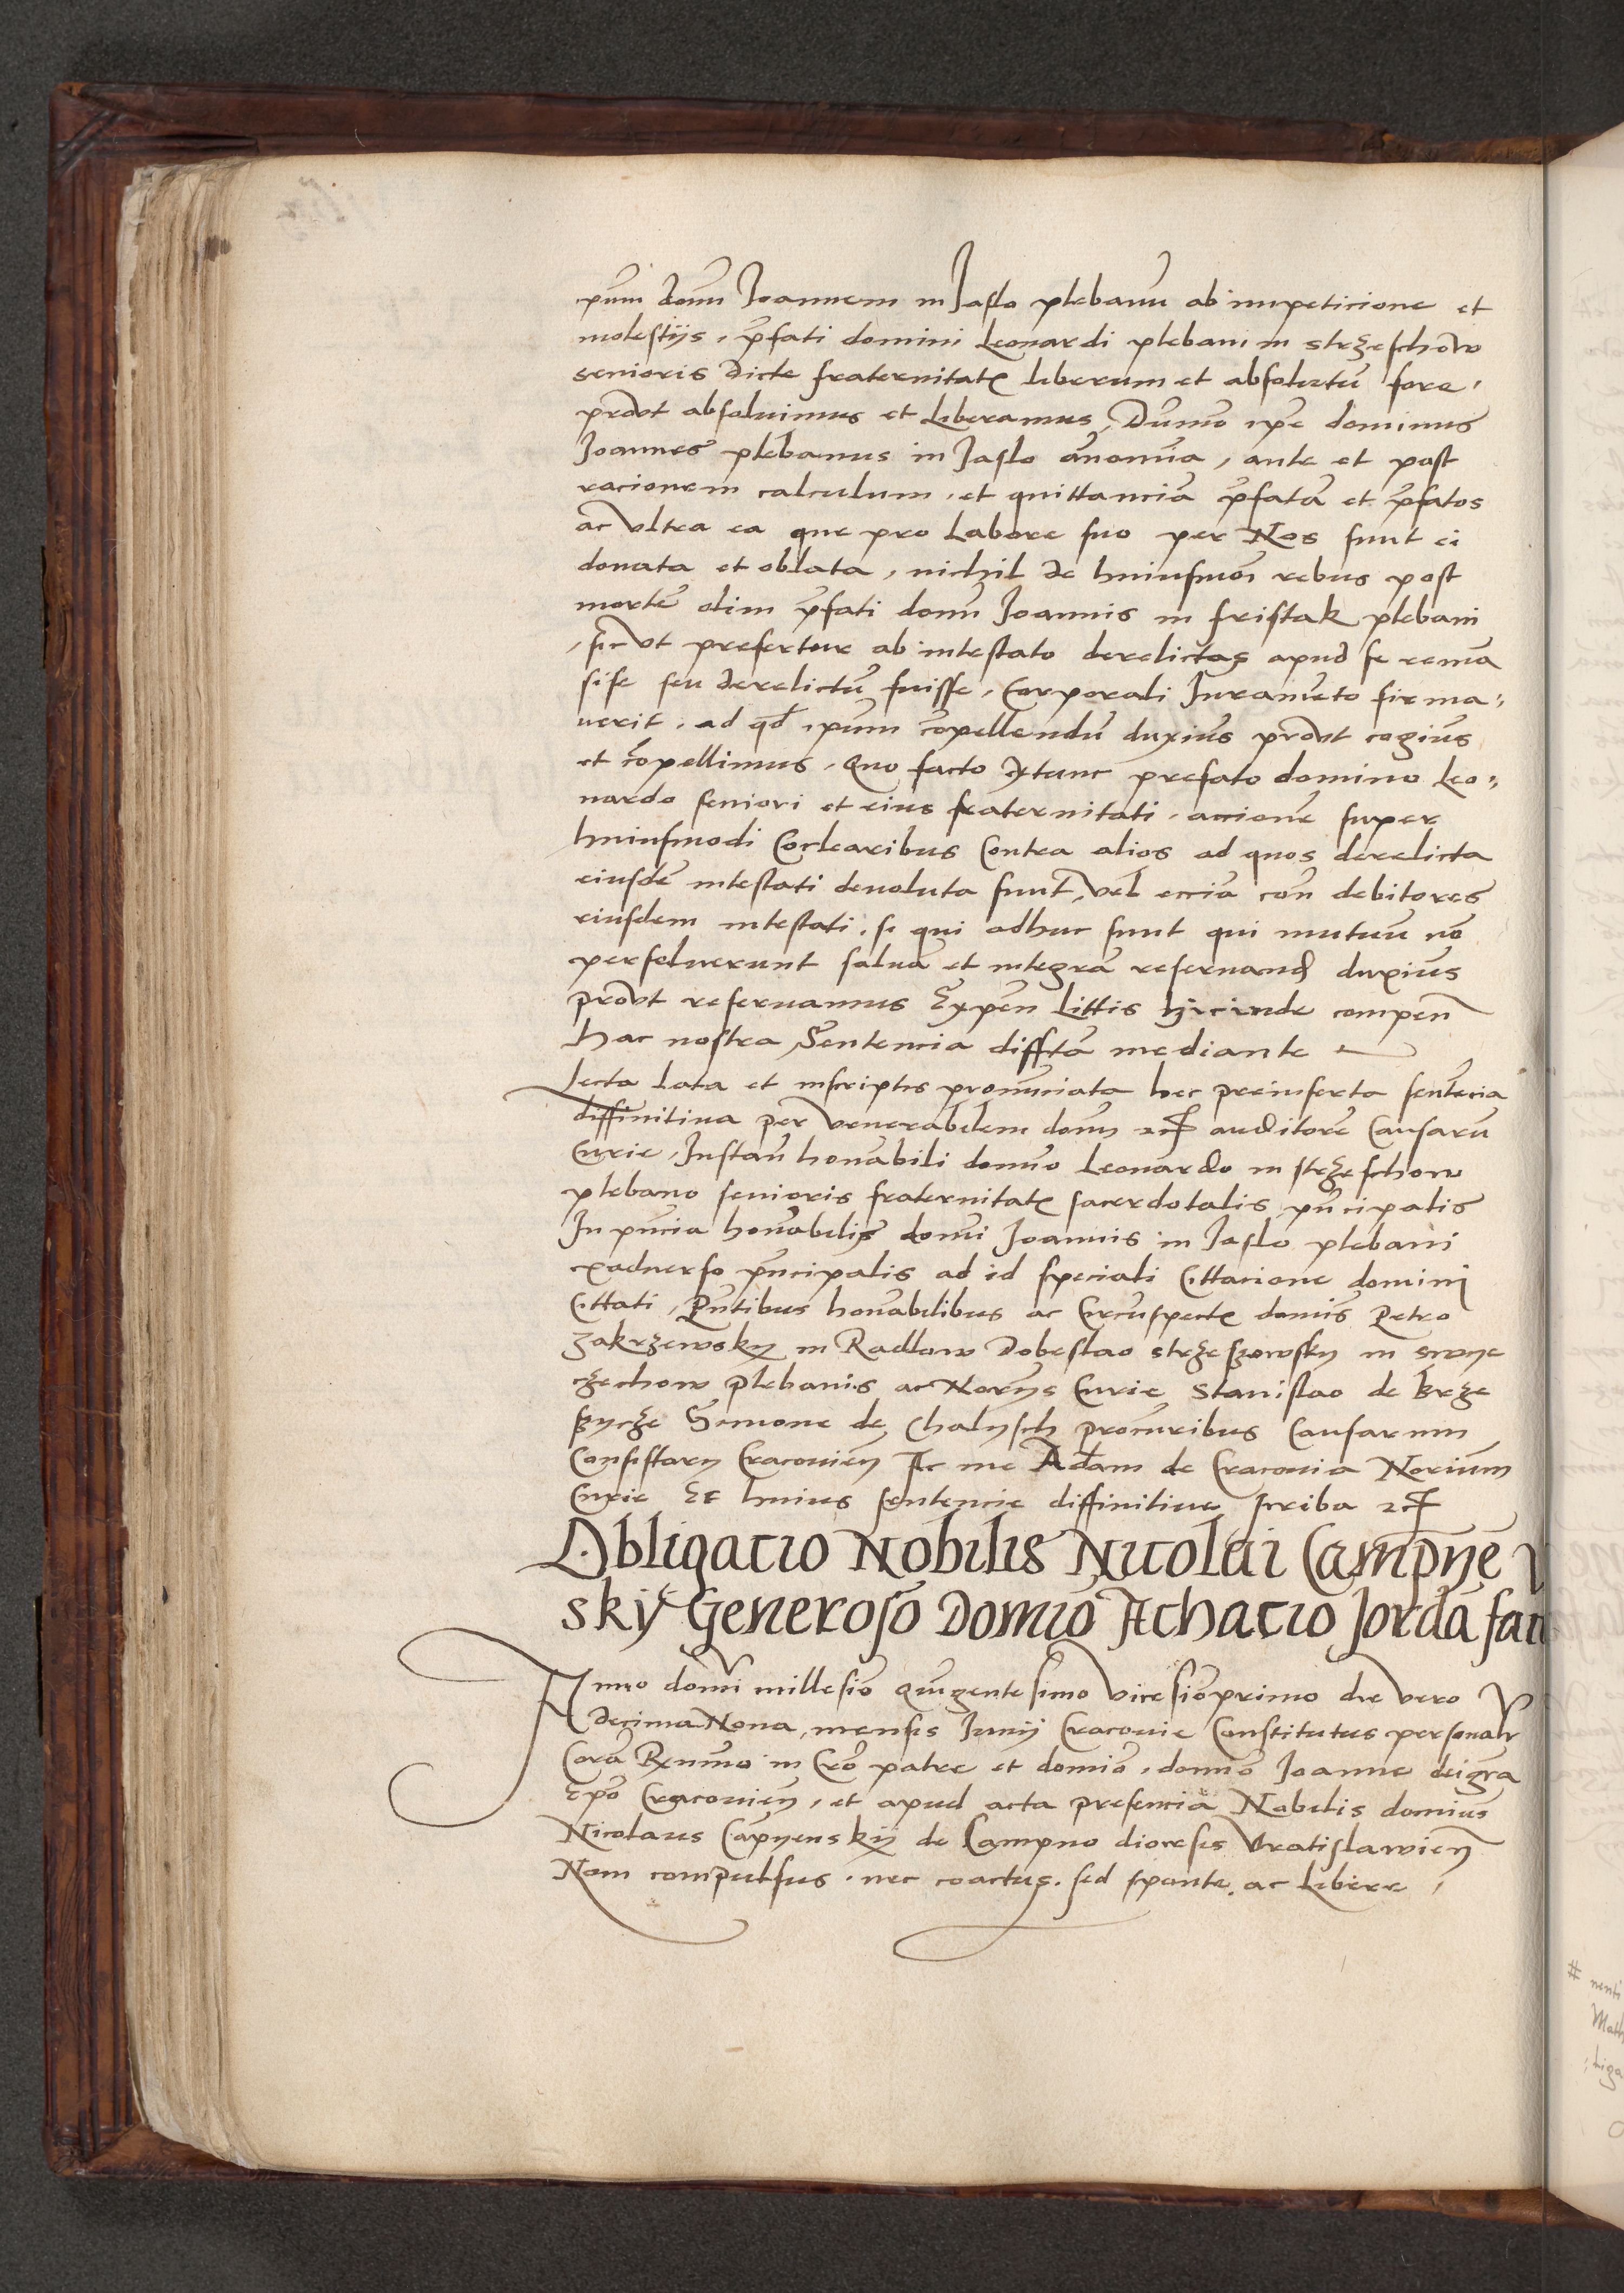 ipum dom̄ Joannem in Jaslo plebanū ab impeticione et
molestijs, p̄fati domini Leonardi plebani in strzeschow
senioris dicte fraternitatꝭ liberum et absolutū fore,
prout absoluimus et liberamus, Dūmō ipse dominus
Joannes plebanus in Jaslo ante et post
racionem calculum, et quittanciā p̄fatā et p̄fatos
ac vltra ea que pro labore suo per Nos sunt ei
donata et oblata, nichil de huiusmōi rebus post
mortē olim p̄fati domi Joannis in fristak plebani
, sicut prefertur ab intestato derelictas apud se remā
sisse seu derelictū fuisse, Corporali Iuramēto firma,
uerit, ad qd̄ ipum cōpellendū duxim̄s prout cogim̄s
et cōpellimus, Quo facto extunc prefato domino Leo,
nardo seniori et eius fraternitati, accionē super
huiusmodi Coclearibus Contra alios ad quos derelicta
eiusdē intestati deuoluta sunt, vel eciā con̄ debitores
eiusdem intestati, si qui adhuc sunt qui mutuū nō
persoluerunt saluā et integrā reseruand̄ duxim̄s
prout reseruamus Expen̄ littis hicinde compen̄
hac nostra Sentencia diffītā mediante
Lecta lata et inscriptis pronūciata hec preinserta sentēcia
diffinitiua per venerabilem dom̄ auditorē Causarū
Curie, Instan̄ honābili domīo Leonardo in strzeschow
plebano senioris fraternitatꝭ sacerdotalis p̄ncipalis
In pn̄cia honābilis domi Joannis in Jaslo plebani
exaduerso p̄ncipalis ad id speciali Cittacione domini
Cittati, Pn̄tibus honābilibus ac Circūspectꝭ domīs Petro
zakrzewsky in Radlow Dobeslao strzeszowsky in swye
czechow plebanis ac Norijs Curie Stanislao de Brze
szycze Simone de Chalysch procūribus Causarum
Consistorij Cracouien̄ Ac me Adam de Cracouia Norium
Curie Et huius sentencie diffinitiue scriba
Obligacio Nobilis Nicolai Campnē
sky Generosō Domīo Achacio Jordā
Anno domī millesīo Quīgentesimo vicesīoprimo die vero
decima Nona, mensis Junij Cracouie Constitutus personalr
Corā Rx̄mmo in Cr̄o patre et domīo, domīo Joanne deigr̄a
Ep̄o Cracouien̄, et apud acta presenciā Nobilis domin̄s
Nicolaus Cāpnensky de Campno diocesis Vratislawien̄
Non compulsus, nec coactus, sed sponte, ac Libere,